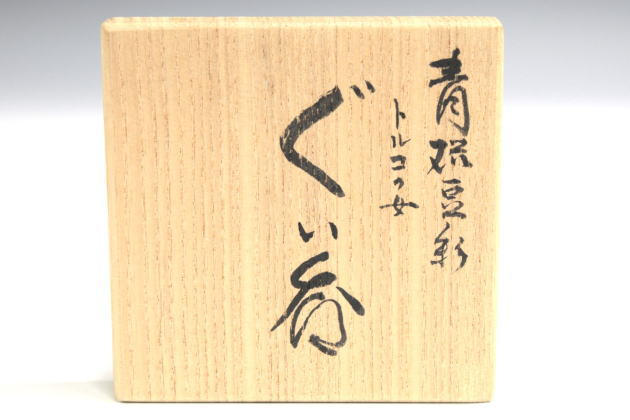 青釉豆彩
トルコの女
ぐい呑